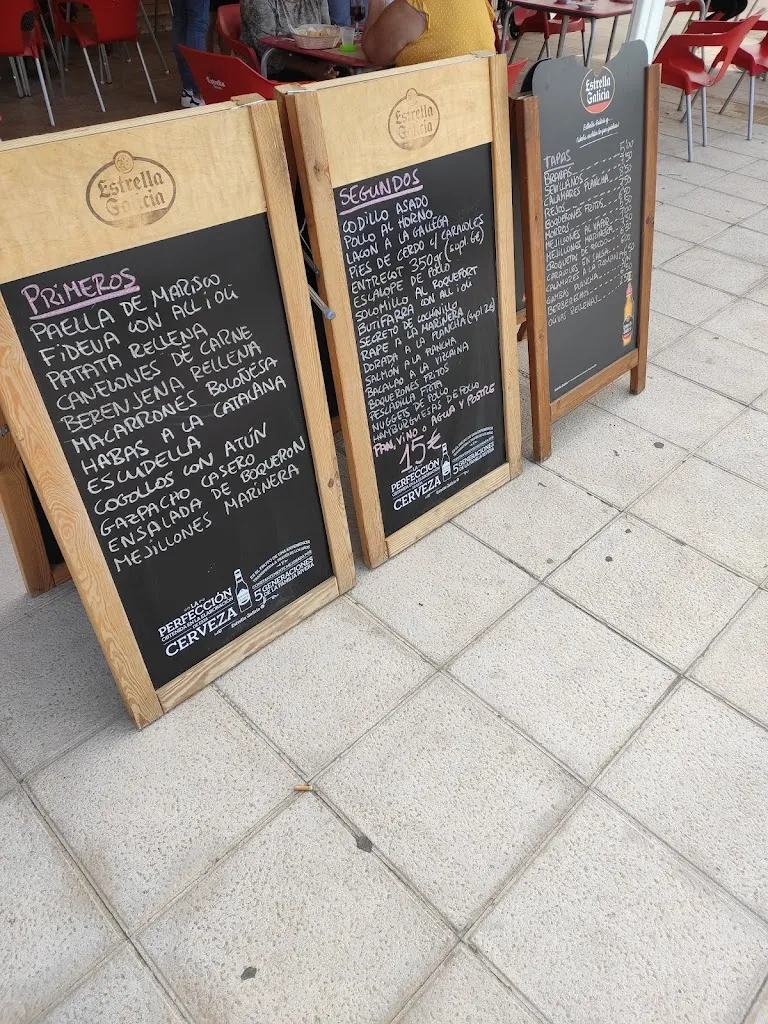 Estrella
Galicia
PRIMEROS
PAELLA DE MARISCO
FIDEUA CON ALL i OLI
PATATA RELLENA
CANELONES DE CARNE
BERENJENA RELLENA
MACARRONES BOLOÑESA
HABAS A LA CATALANA
ESCUDELLA
COGOLLOS CON ATÚN
GAZPACHO CASERO
ENSALADA DE BOQUERON
MEJILLONES MARINERA
LA
PERFECCIÓN
CERVEZA
5 GENERACIONES
DE LA FAMILIA RIVERA
Estrella Galicia
Estrella
Galicia
SEGUNDOS
CODILLO ASADO
POLLO AL HORNO
LACON A LA GALLEGA
PIES DE CERDO C/ CARACOLES
ENTRECOT 350gr (supl 6€)
ESCALOPE DE POLLO
SOLOMILLO AL ROQUEFORT
BUTIFARRA CON ALL i OLI
SECRETO DE COCHINILLO
RAPE A LA MARINERA
DORADA A LA PLANCHA (supl 2€)
SALMÓN A LA PLANCHA
BACALAO A LA VIZCAINA
BOQUERONES FRITOS
PESCADILLA FRITA
NUGGETS DE POLLO
HAMBURGUESAS DE POLLO
PAN, VINO o AGUA Y POSTRE
15€
LA
PERFECCIÓN
CERVEZA
5 GENERACIONES
DE LA FAMILIA RIVERA
Estrella
Galicia
TAPAS
BRAVAS
SEVILLANOS
CALAMARES PLANCHA
REJOS
BOQUERONES FRITOS
MORROS
MEJILLONES AL VAPOR
MEJILLONES MARINERA
CROQUETAS DE
CARACOLES EN SALSA
CALAMARES A LA ROMANA
GAMBAS PLANCHA
BERBERECHOS
OLIVAS RELLENAS